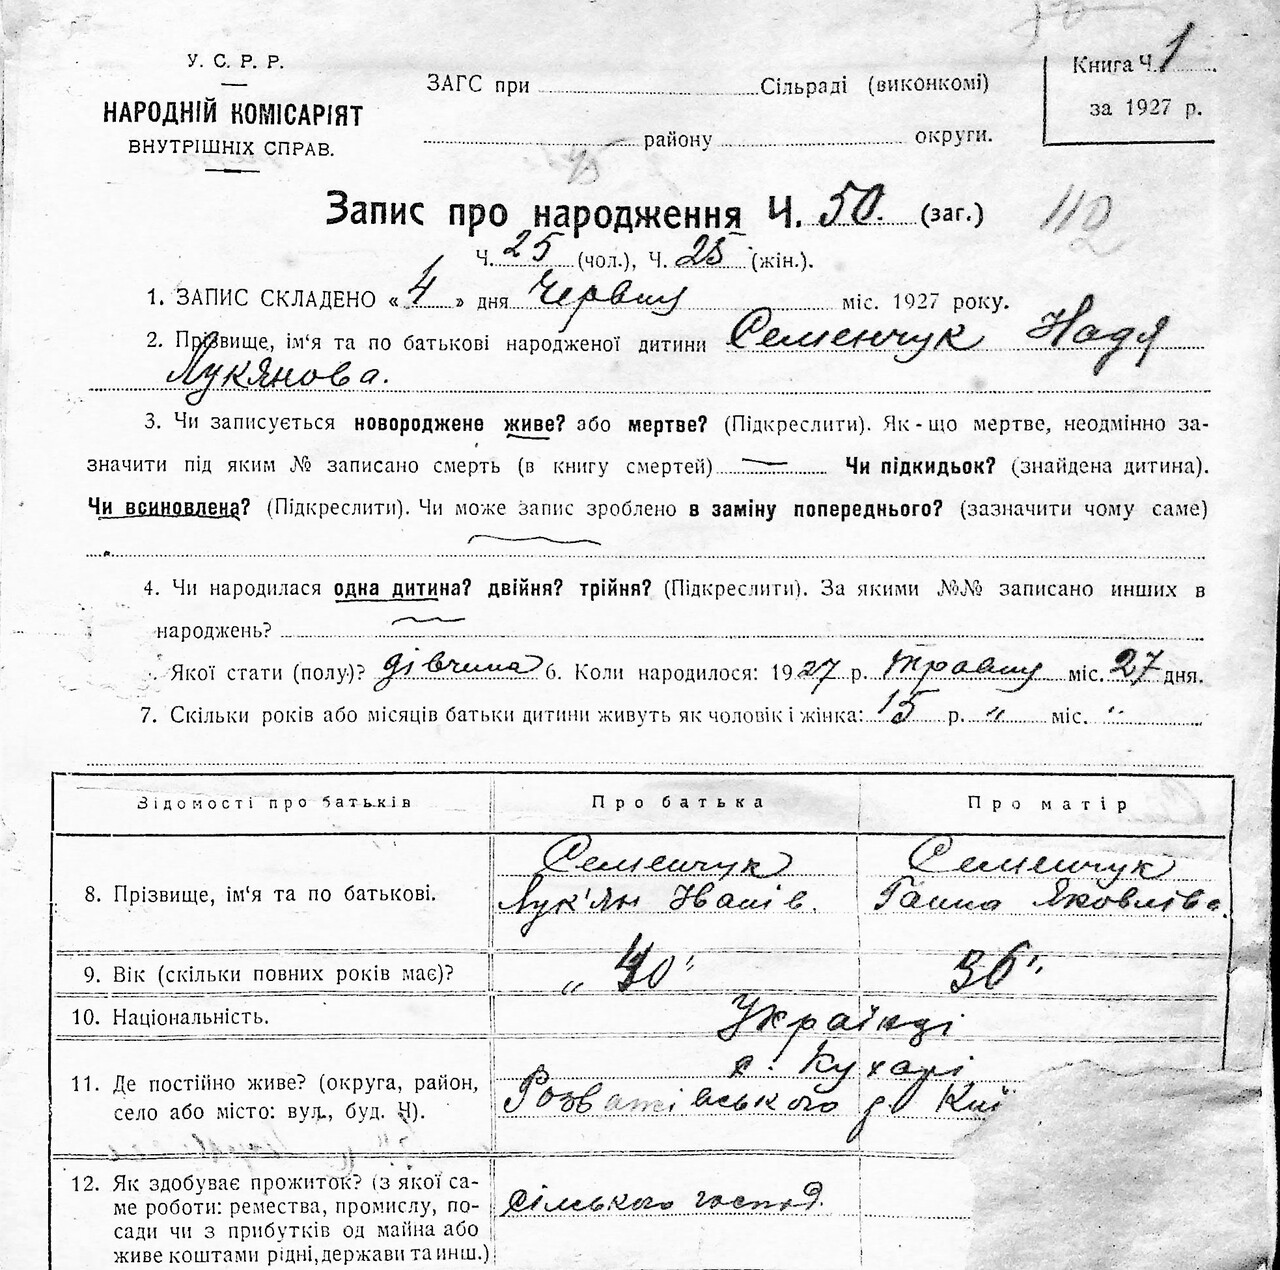 У. С. Р. Р.
НАРОДНІЙ КОМІСАРІЯТ
ВНУТРІШНІХ СПРАВ.
ЗАГС при Сільраді (виконкомі)
району округи.
Книга Ч. 1
за 1927 р.
Запис про народження Ч. 50. (заг.)
112
Ч. 25 (чол.), Ч. 25 (жін.).
1. ЗАПИС СКЛАДЕНО « 4 » дня Червня міс. 1927 року.
2. Прізвище, ім‘я та по батькові народженої дитини Семенчук Надя
Лукянова.
3. Чи записується новороджене живе? або мертве? (Підкреслити). Як-що мертве, неодмінно за-
значити під яким № записано смерть (в книгу смертей) — Чи підкидьок? (знайдена дитина).
Чи всиновлена? (Підкреслити). Чи може запис зроблено в заміну попереднього? (зазначити чому саме)
4. Чи народилася одна дитина? двійня? трійня? (Підкреслити). За якими №№ записано инших в
народжень?
Якої стати (полу)? дівчина 6. Коли народилося: 1927 р. травня міс. 27 дня.
7. Скільки років або місяців батьки дитини живуть як чоловік і жінка: 15 р. " міс. "
Відомості про батьків
Про батька
Про матір
8. Прізвище, ім‘я та по батькові.
Семенчук
Лук'ян Іванів.
Семенчук
Ганна Яковлівa.
9. Вік (скільки повних років має)?
" 40 "
36 "
10. Національність.
Українці
11. Де постійно живе? (округа, район,
село або місто: вул., буд. Ч).
с. Кухарі
Розважівського р. Киї
12. Як здобуває прожиток? (з якої са-
ме роботи: ремества, промислу, по-
сади чи з прибутків од майна або
живе коштами рідні, держави та инш.)
сільського господ.